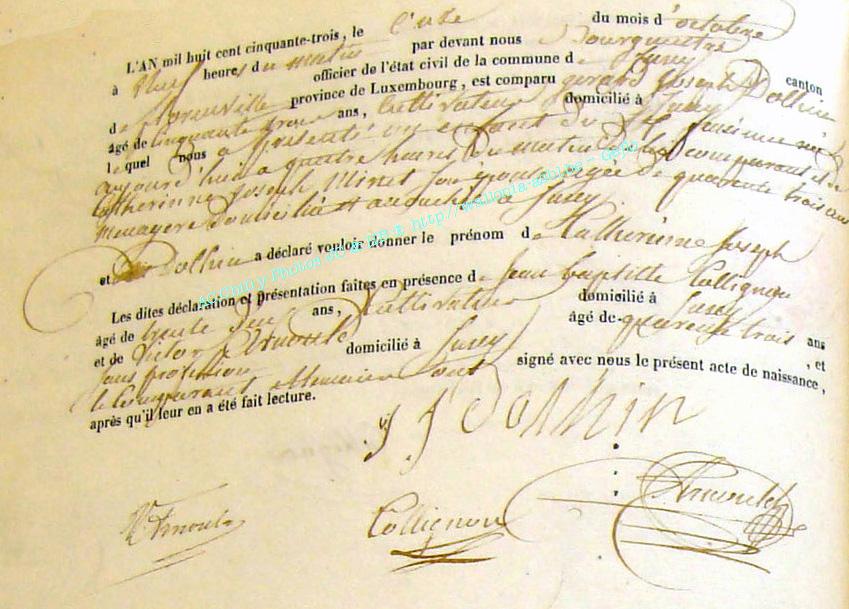 L'AN mil huit cent cinquante-trois, le onze du mois d'octobre
à neuf heures du matin par devant nous Bourgmestre
officier de l'état civil de la commune de Suxey canton
de Florenville province de Luxembourg, est comparu gérard Joseph Dolhin
âgé de cinquante trois ans, Cultivateur domicilié à Suxey
lequel nous a présenté un enfant du féminin né
aujourd'hui a quatre heures du matin comparant et de
Catherinne Joseph Minet son épouse agée de quarante trois ans
menagere domiciliée et accouchée à Suxey
et Dolhin a déclaré vouloir donner le prénom de Catherinne Joseph
Les dites déclaration et présentation faites en présence de Jean baptitte Collignon
âgé de trente ans, Cultivateur domicilié à Suxey
et de Victor Arnould âgé de quarente trois ans
sans profession domicilié à Suxey , et
le Comparant et temoins ont signé avec nous le présent acte de naissance,
après qu'il leur en a été fait lecture.
Dolhin
V Arnould Collignon Arnould
http://wallonia-asbine